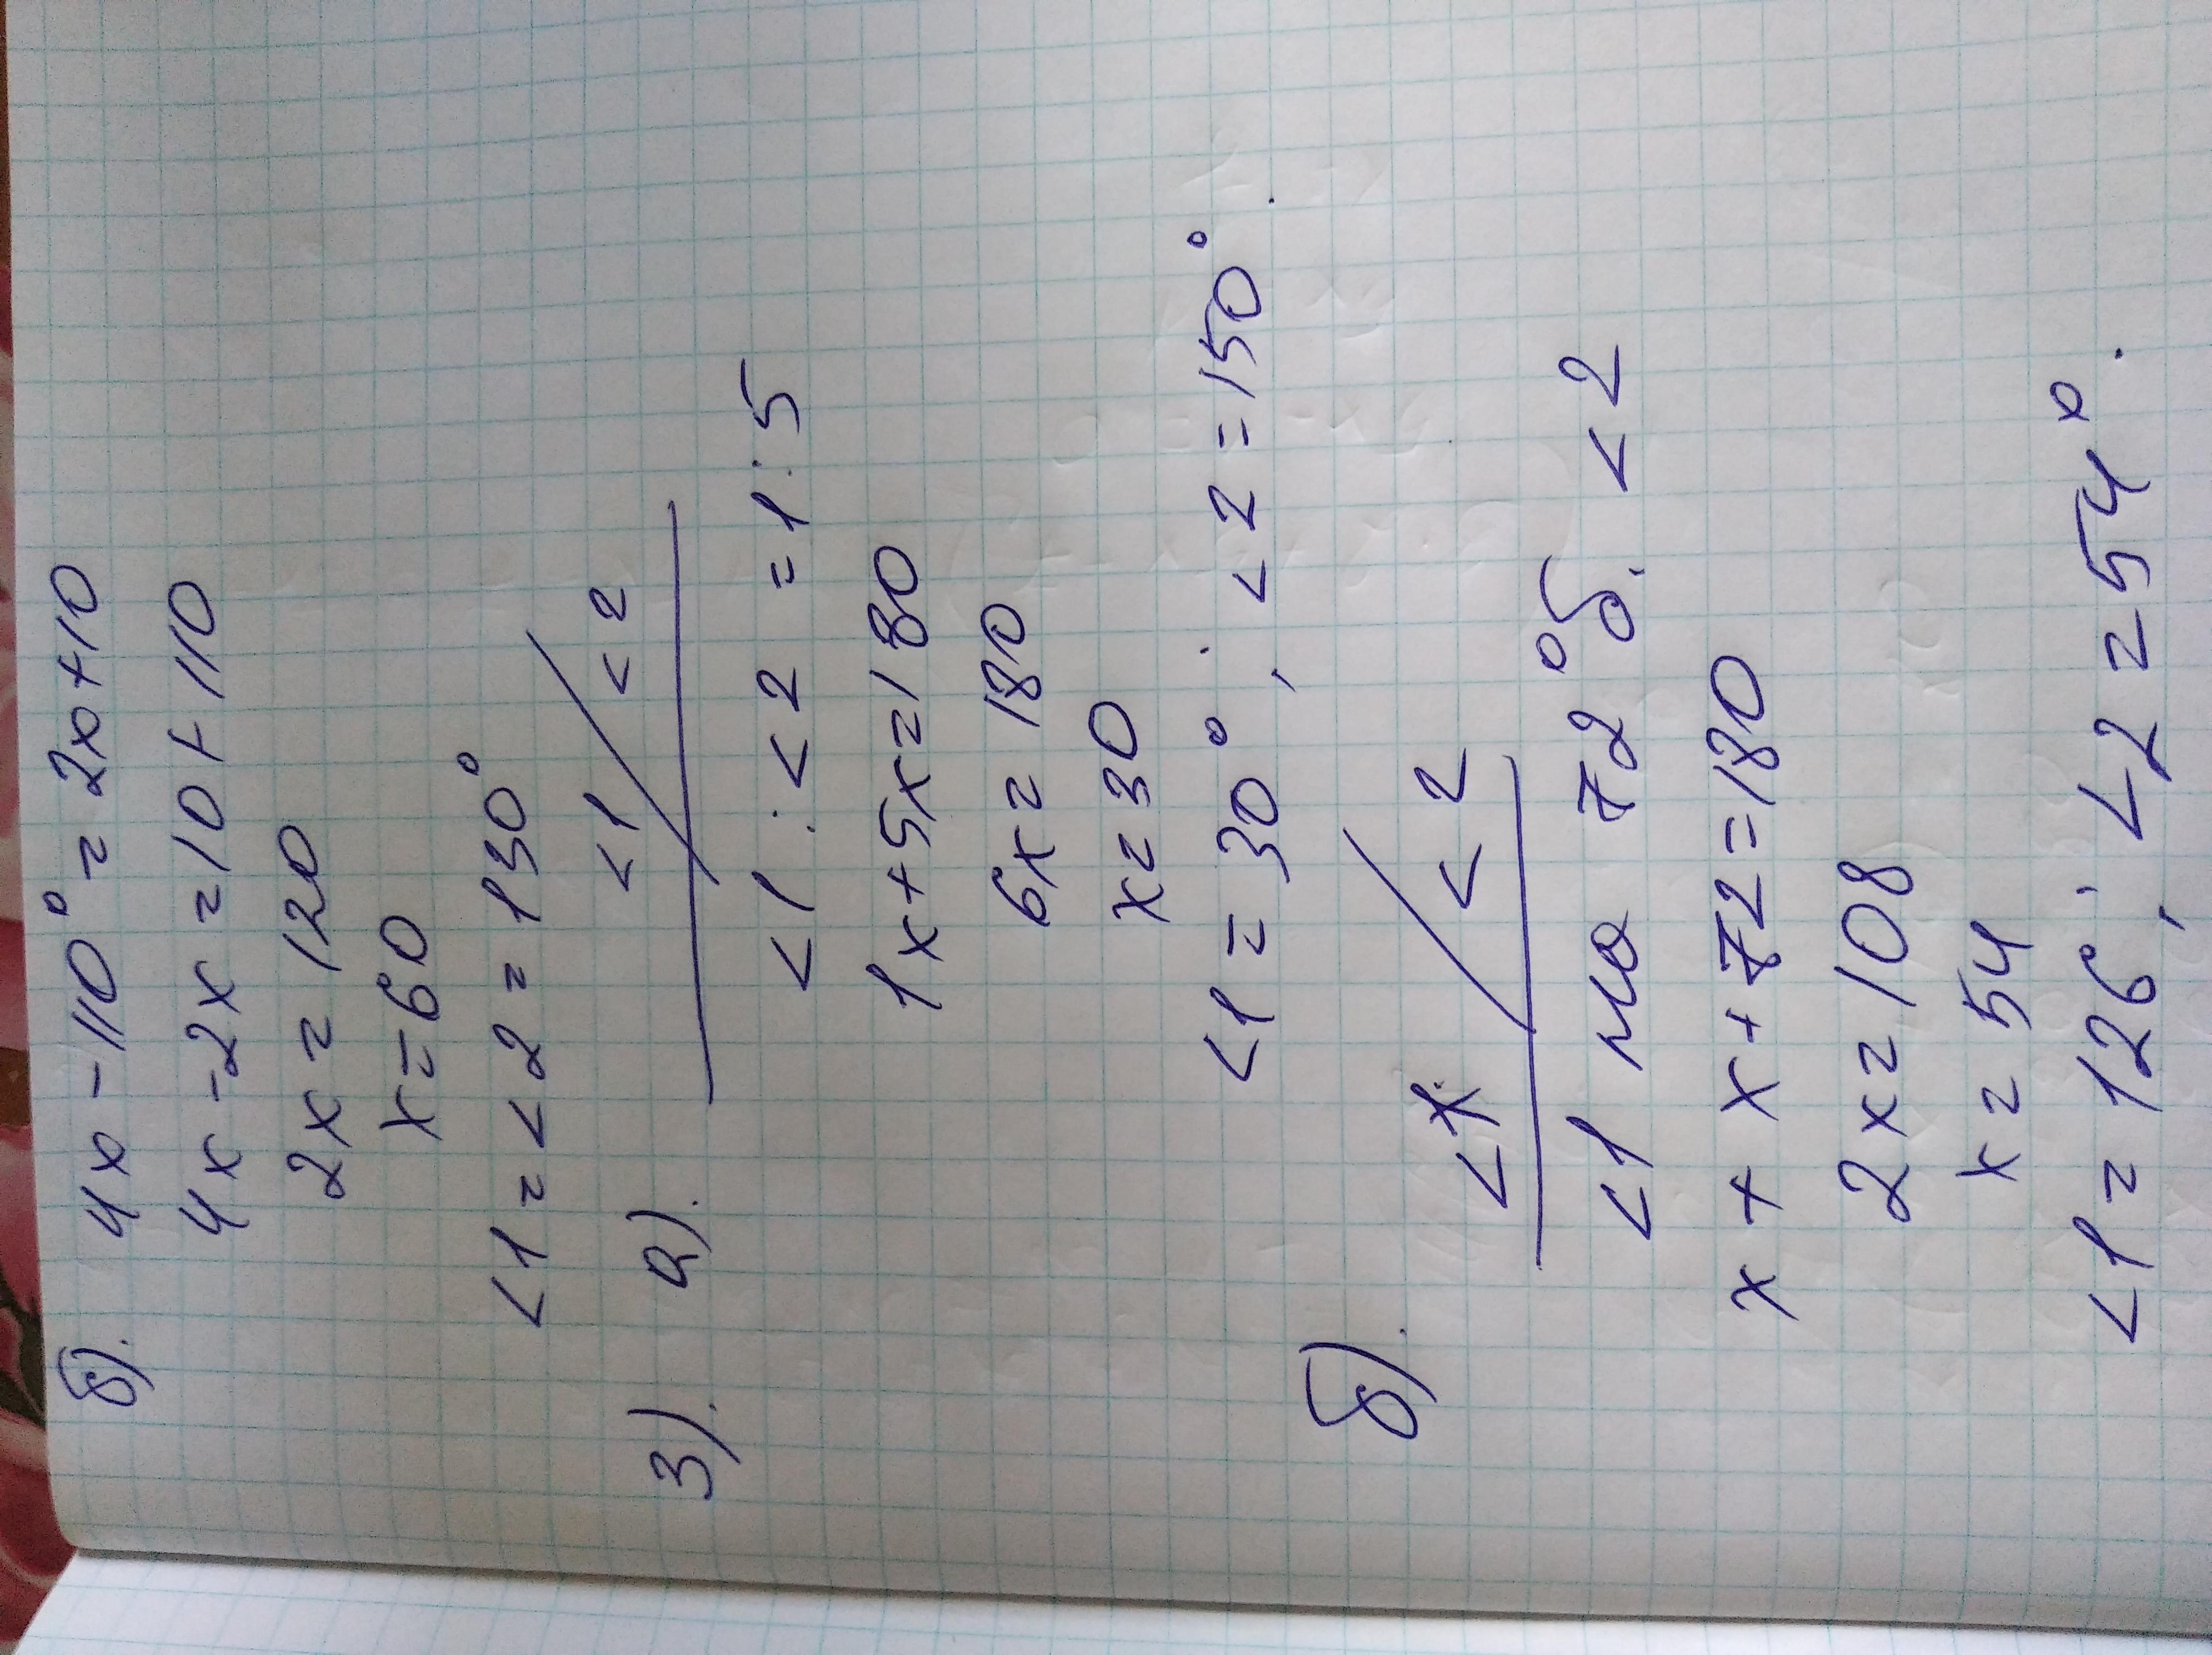 б). 4x - 110° = 2x + 10
4x - 2x = 10 + 110
2x = 120
x = 60
<1 = <2 = 130°
3). а). <1 <2
<1 : <2 = 1 : 5
1x + 5x = 180
6x = 180
x = 30
<1 = 30° ; <2 = 150° .
б). <1. <2
<1 на 72° б. <2
x + x + 72 = 180
2x = 108
x = 54
<1 = 126° ; <2 = 54° .